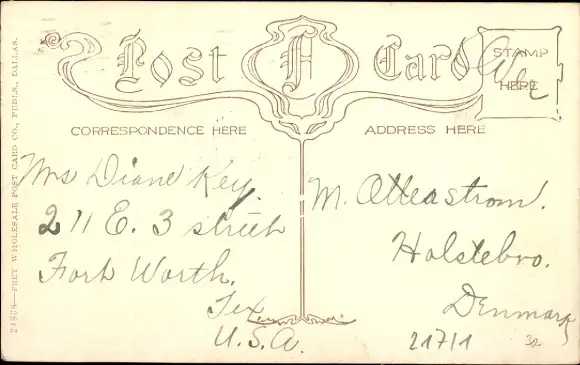 Post Card
STAMP
HERE
CORRESPONDENCE HERE
ADDRESS HERE
24838—FREY WHOLESALE POST CARD CO., PUBLS., DALLAS.
Mrs Diane Key.
211 E. 3 street
Fort Worth,
Tex
U.S.A.
M.
Holstebro.
Denmark
21711
32